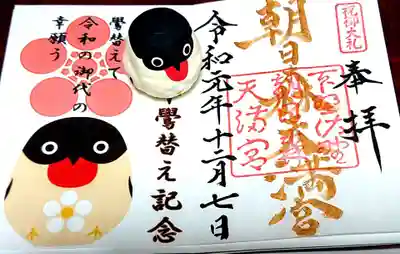 祝御大礼
奉拝
朝日森天満宮
天満宮
令和元年十二月七日
鷽替え記念
鷽替えて
令和の御代の
幸願う